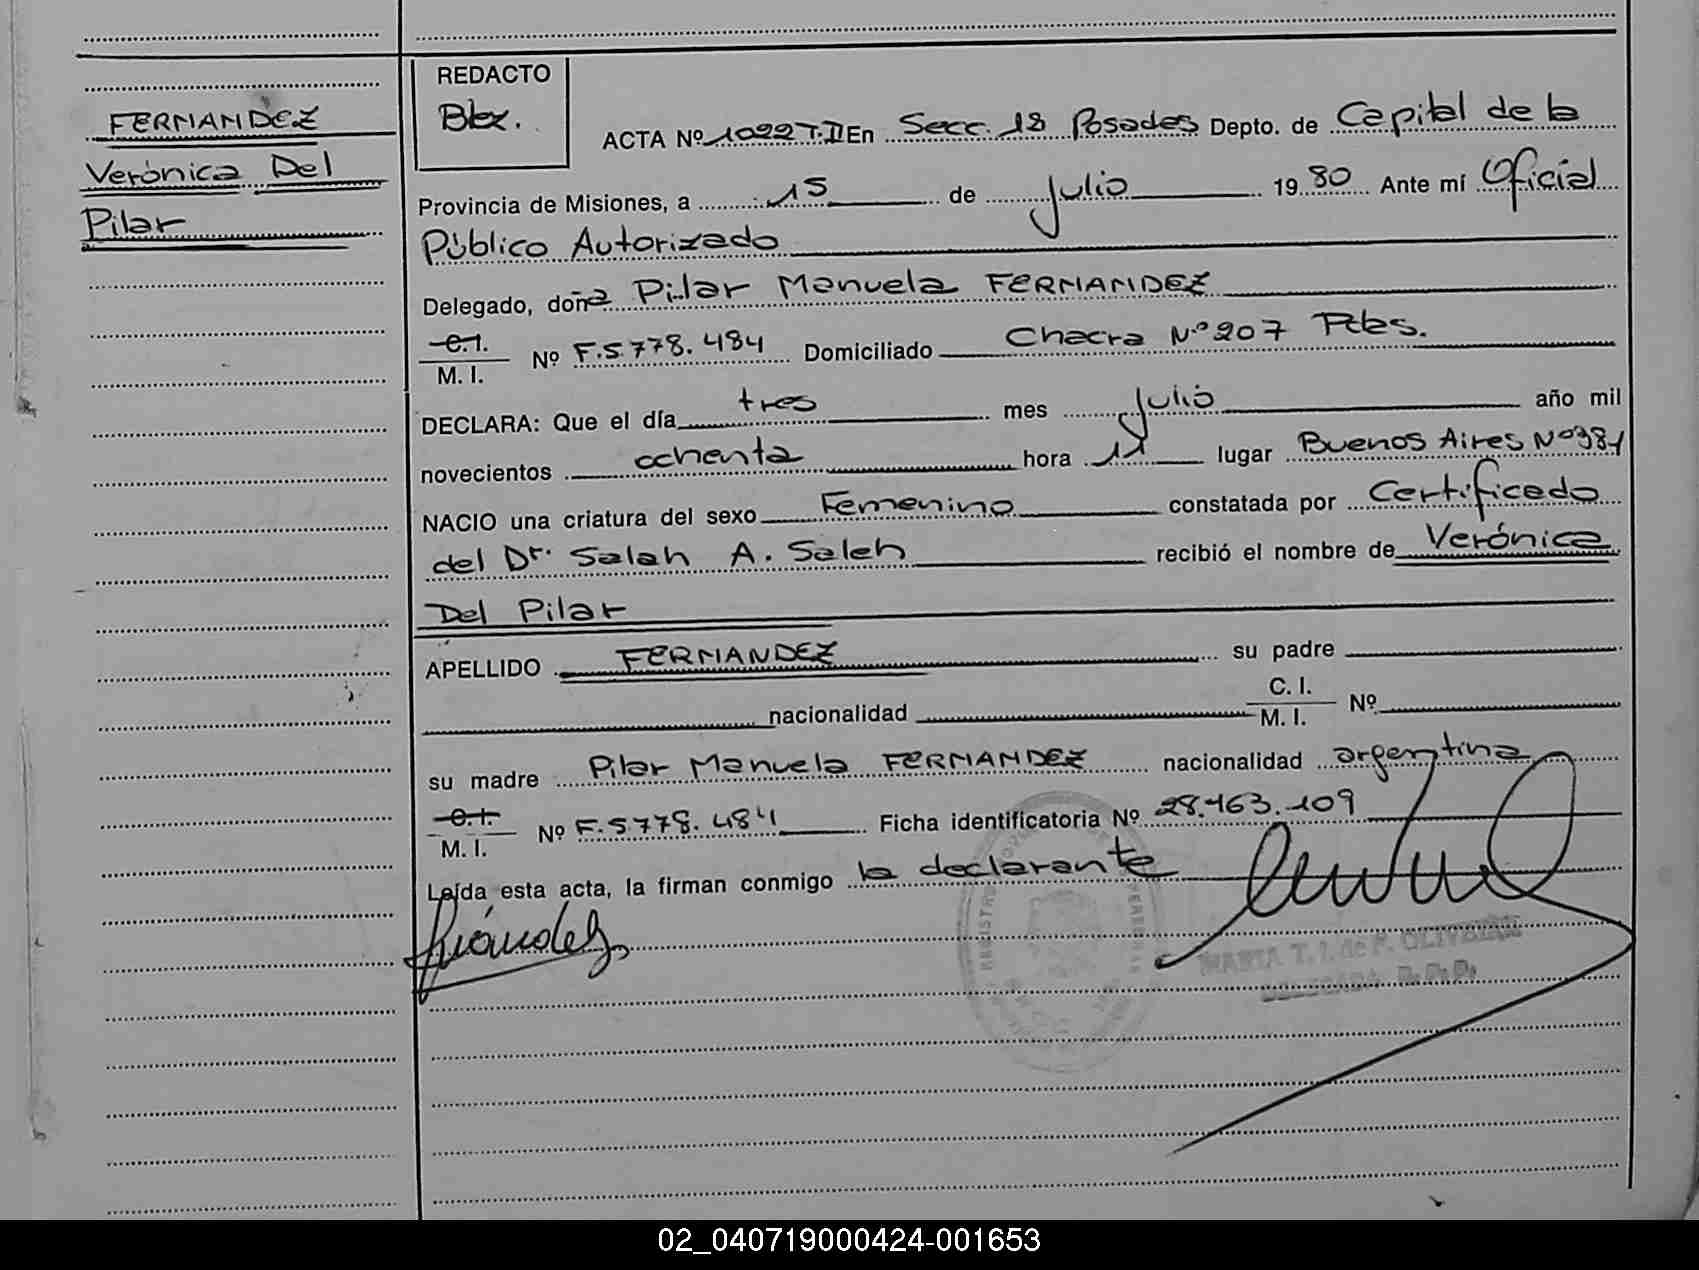 FERNANDEZ
Verónica Del
Pilar
REDACTO
ACTA Nº 1022 T.II En Secc. 18 Posadas Depto. de Capital de la
Provincia de Misiones, a 15 de Julio 1980 Ante mí Oficial
Público Autorizado
Delegado, doña Pilar Manuela FERNANDEZ
C.I.
M. I. Nº F.5.778.484 Domiciliado Chacra Nº 207 Pdas.
DECLARA: Que el día tres mes Julio año mil
novecientos ochenta hora 11 lugar Buenos Aires Nº 381
NACIO una criatura del sexo Femenino constatada por Certificado
del Dr. Salah A. Saleh recibió el nombre de Verónica
Del Pilar
APELLIDO FERNANDEZ su padre
nacionalidad C. I.
M. I. Nº
su madre Pilar Manuela FERNANDEZ nacionalidad argentina
C.I.
M. I. Nº F.5.778.484 Ficha identificatoria Nº 28.463.109
Leída esta acta, la firman conmigo la declarante
MARIA T. I. de F. OLIVEIRA
DELEGADA R.P.P.
02_040719000424-001653